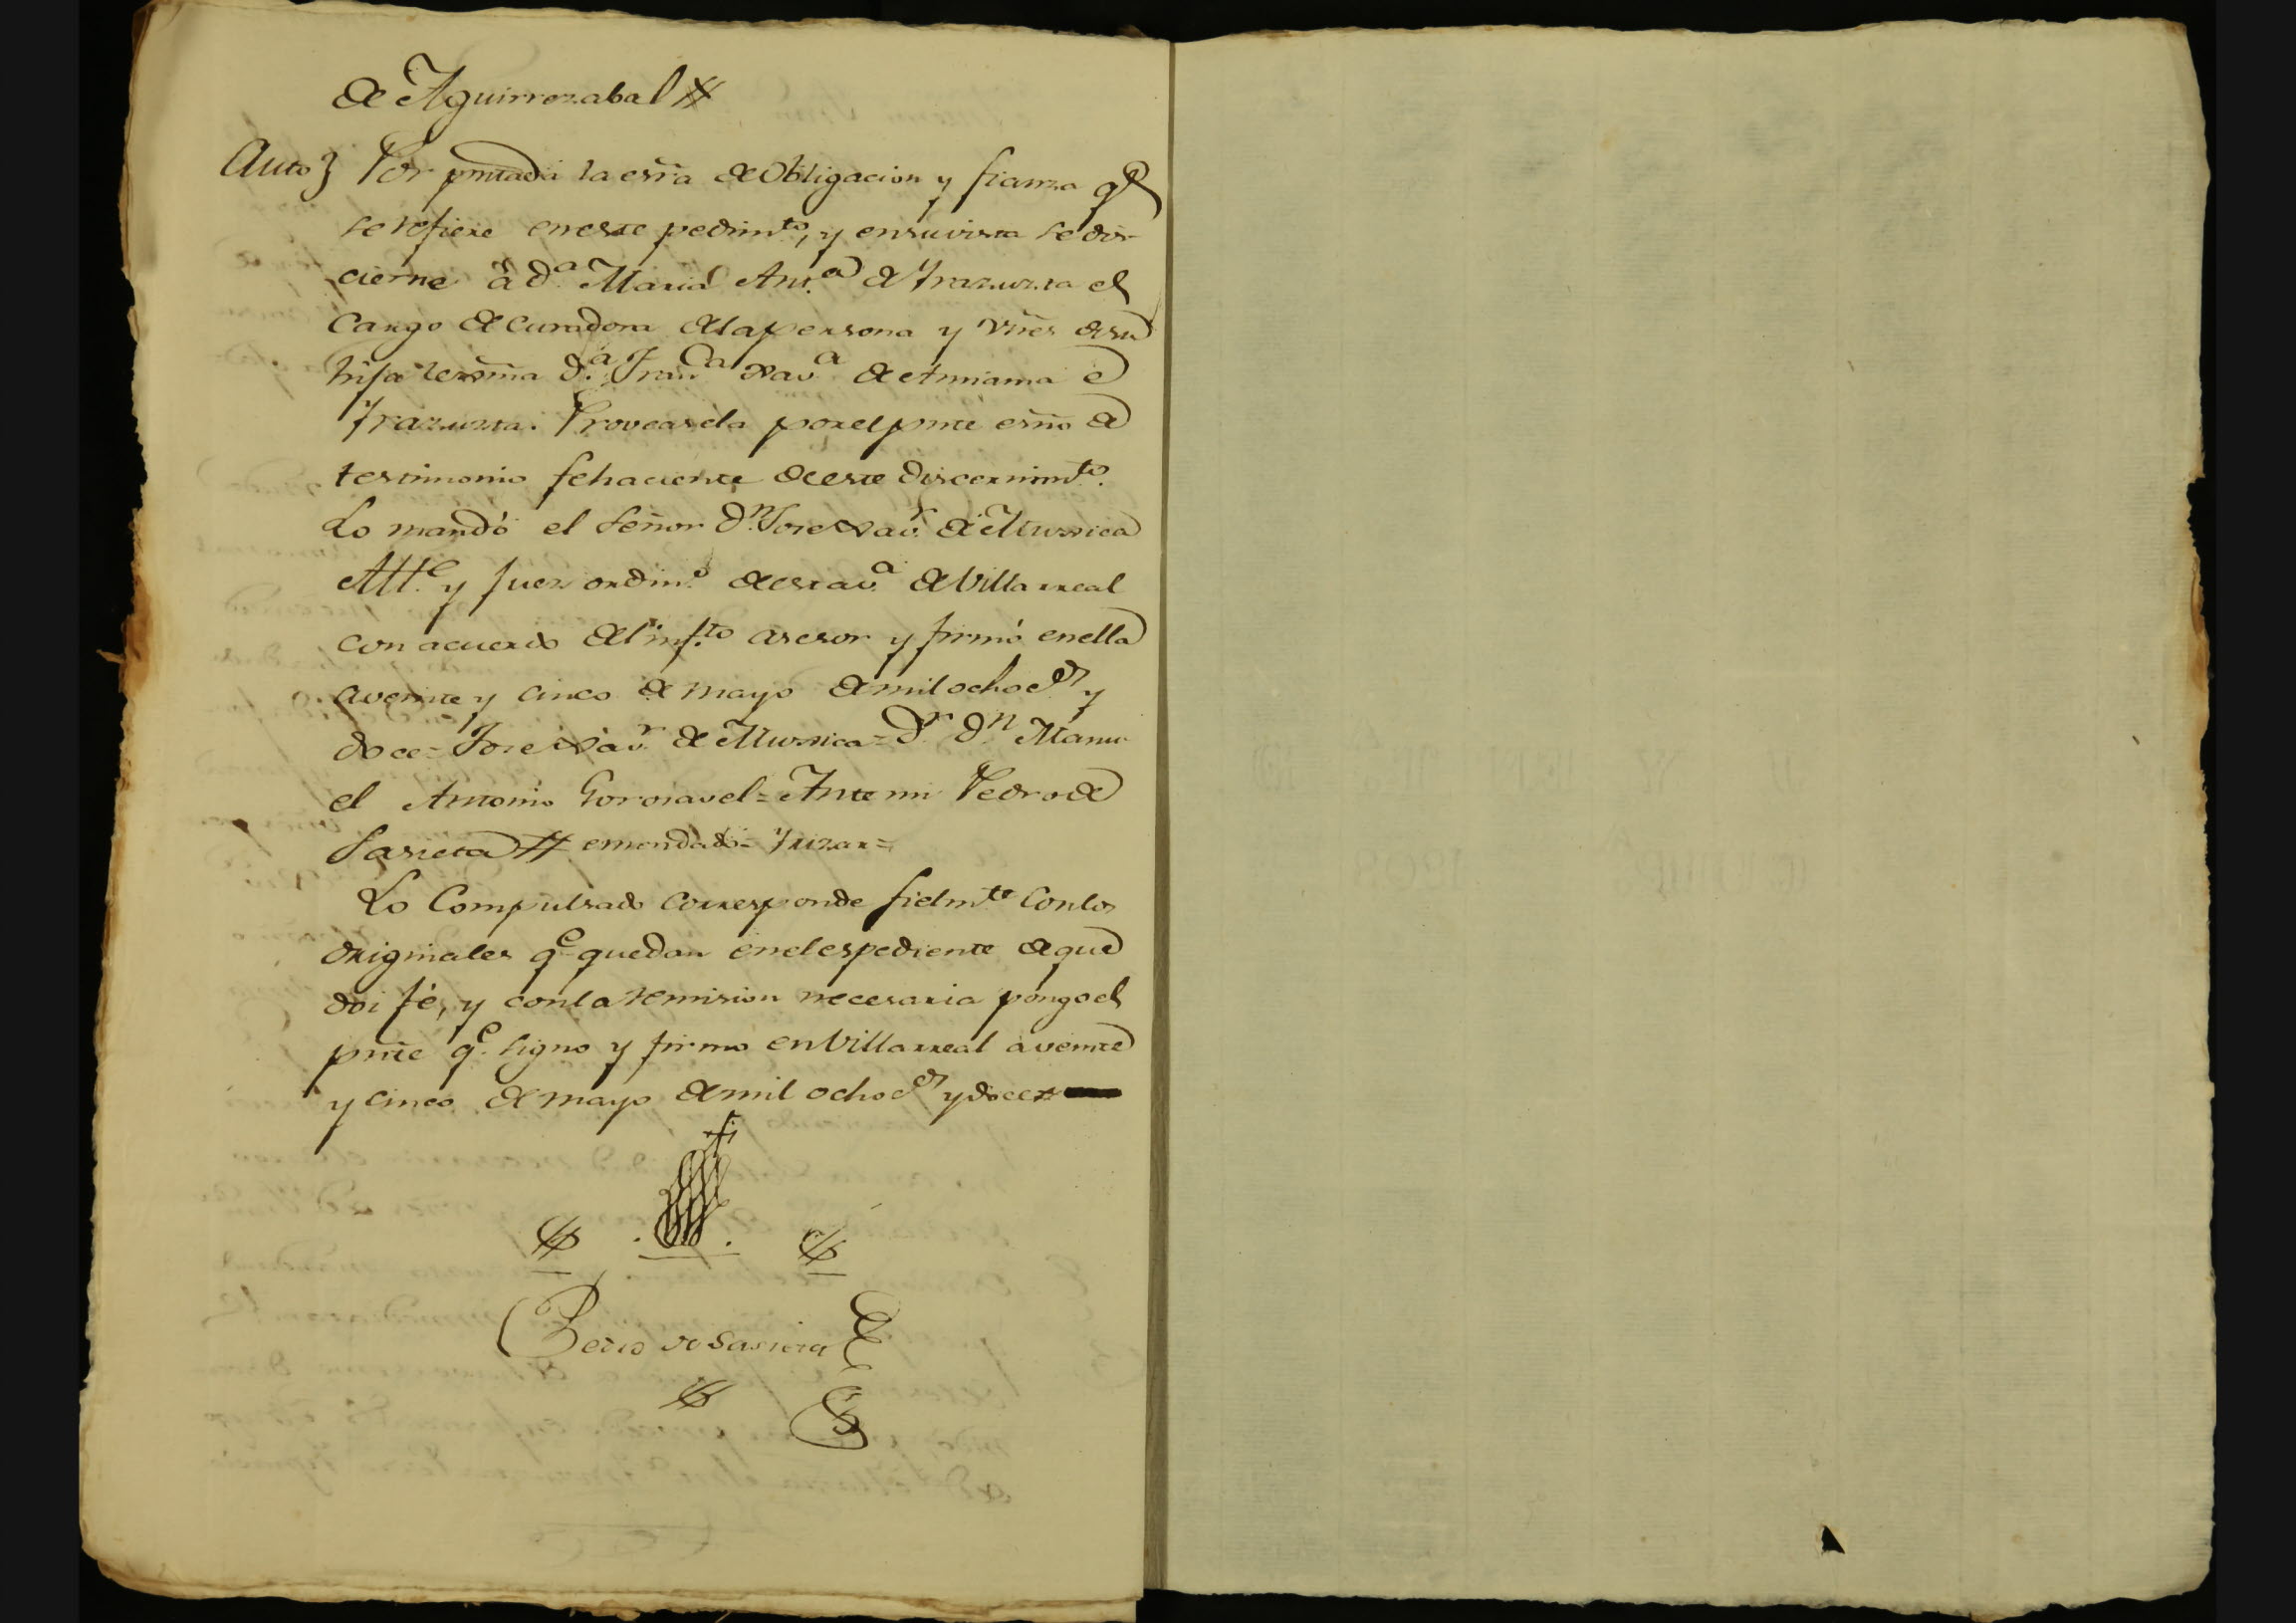 de Aguirrezabal #
Auto } Por pntada la esrã de Obligacion y fianza qe
se refiere en este pedimto, y en su vista se dis-
cierne â d.a Maria Ant.a de Yrazuzta el
Cargo de Curadora de la persona y vnes de su
hija lexma D.a Fran.ca Xav.a de Amiama e
Yrazuzta. Proveasela por el pnte esno de
testimonio fehaciente de este discernim.to.
Lo mandó el Señor D.n Jose Xav.r de Muxica
Alt.e y Juez ordin.o de esta v.a de Villarreal
con acuerdo del inf.to asesor y firmó en ella
a veinte y cinco de mayo de mil ochoc.s y
doce = Jose Xav.r de Muxica = D.r D.n Manu-
el Antonio Gorosavel = Ante mi Pedro de
Sasieta # emendado = Yrizar =
Lo Compulsado corresponde fielm.te con los
originales q.e quedan en el espediente de que
doi fé, y con la remision necesaria pongo el
pnte q.e signo y firmo en Villarreal a veinte
y cinco de mayo de mil ochoc.s y doce #
Pedro de Sasieta